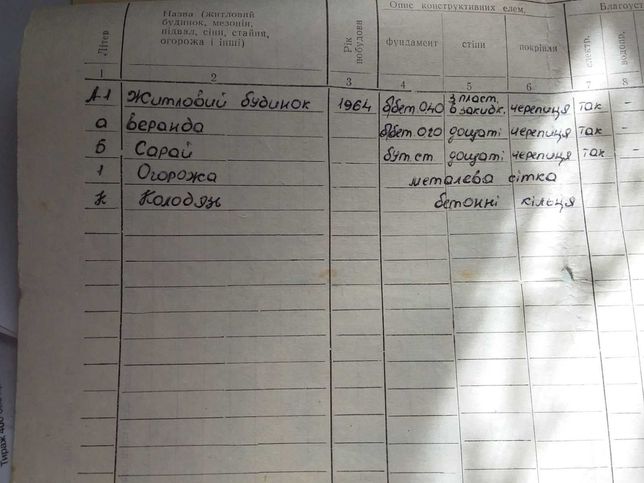 Опис конструктивних елем.
Благоуст
Літев
Назва (житловий
будинок, мезонін,
підвал, сіни, стайня,
огорожа і інші)
Рік
побудови
фундамент
стіни
покрівля
електр.
водопр.
1 2 3 4 5 6 7 8
А-1 Житловий будинок 1964 б/бет. 040 3 пласт. в закидк. черепиця так -
а Веранда б/бет 020 дощаті черепиця так -
Б Сарай бут ст дощаті черепиця так -
1 Огорожа металева сітка
К Колодяж бетонні кільця
Тираж 400